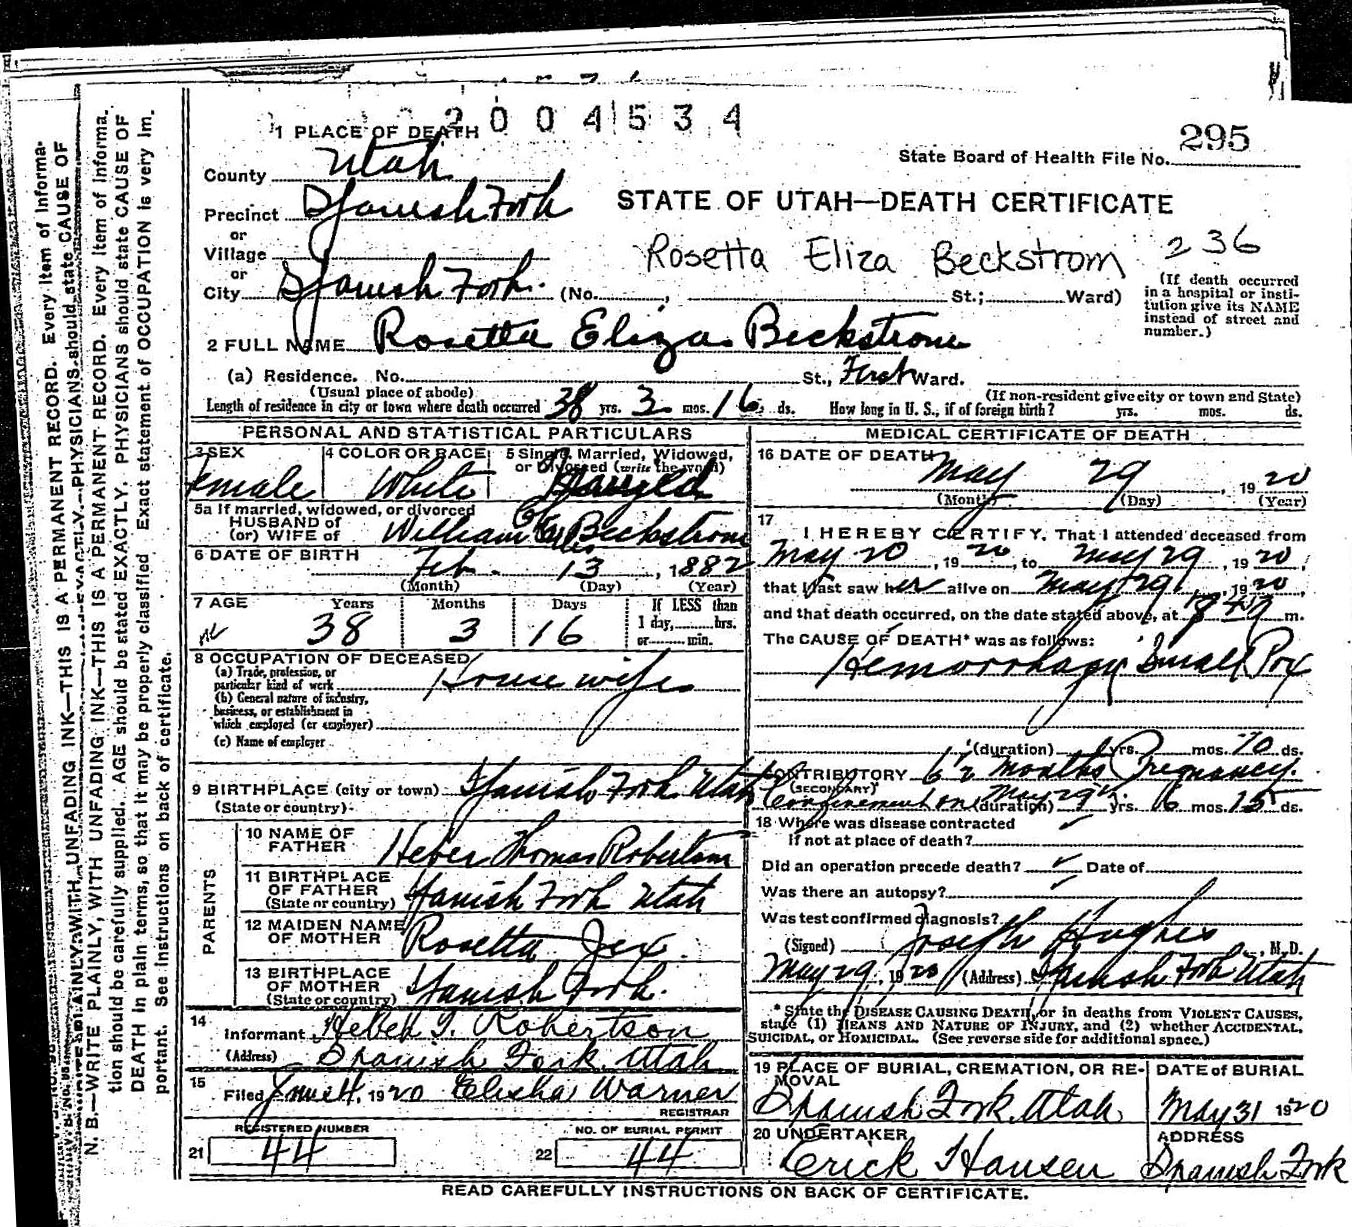 2004534
1 PLACE OF DEATH
295
State Board of Health File No.
County Utah
Precinct Spanish Fork
STATE OF UTAH—DEATH CERTIFICATE
or
Village
Rosetta Eliza Beckstrom 236
or
City Spanish Fork. (No. , St.; Ward)
(If death occurred in a hospital or insti-
tution give its NAME
instead of street and
number.)
2 FULL NAME Rosetta Eliza Beckstrom
(a) Residence. No. St., First Ward.
(Usual place of abode) (If non-resident give city or town and State)
Length of residence in city or town where death occurred 38 yrs. 3 mos. 16 ds. How long in U. S., if of foreign birth? yrs. mos. ds.
PERSONAL AND STATISTICAL PARTICULARS
3 SEX 4 COLOR OR RACE 5 Single, Married, Widowed,
or Divorced (write the word)
Female White Married
5a If married, widowed, or divorced
HUSBAND of
(or) WIFE of William Beckstrom
6 DATE OF BIRTH
Feb. 13, 1882
(Month) (Day) (Year)
7 AGE Years Months Days If LESS than
1 day, hrs.
or min.
38 3 16
8 OCCUPATION OF DECEASED
(a) Trade, profession, or
particular kind of work Housewife
(b) General nature of industry,
business, or establishment in
which employed (or employer)
(c) Name of employer
9 BIRTHPLACE (city or town) Spanish Fork Utah
(State or country)
PARENTS
10 NAME OF
FATHER Heber Thomas Robertson
11 BIRTHPLACE
OF FATHER Spanish Fork Utah
(State or country)
12 MAIDEN NAME
OF MOTHER Rosetta Jex.
13 BIRTHPLACE
OF MOTHER Spanish Fork.
(State or country)
14
Informant Heber T. Robertson
(Address) Spanish Fork Utah
15
Filed June 4, 1920 Elisha Warner
REGISTRAR
REGISTERED NUMBER NO. OF BURIAL PERMIT
21 44 22 44
MEDICAL CERTIFICATE OF DEATH
16 DATE OF DEATH
May 29, 1920
(Month) (Day) (Year)
17
I HEREBY CERTIFY, That I attended deceased from
May 20, 1920, to May 29, 1920,
that I last saw her alive on May 29, 1920,
and that death occurred, on the date stated above, at m.
The CAUSE OF DEATH* was as follows:
Hemorrhagic Small Pox
(duration) yrs. mos. 10 ds.
CONTRIBUTORY 6 1/2 months Pregnancy.
(SECONDARY)
Confinement on May 29th.
(duration) yrs. 6 mos. 15 ds.
18 Where was disease contracted
if not at place of death?
Did an operation precede death? ✓ Date of
Was there an autopsy?
Was test confirmed diagnosis?
(Signed) Joseph Hughes, M. D.
May 29, 1920 (Address) Spanish Fork Utah
* State the DISEASE CAUSING DEATH, or in deaths from VIOLENT CAUSES,
state (1) MEANS AND NATURE OF INJURY, and (2) whether ACCIDENTAL,
SUICIDAL, or HOMICIDAL. (See reverse side for additional space.)
19 PLACE OF BURIAL, CREMATION, OR RE-
MOVAL
Spanish Fork, Utah
DATE OF BURIAL
May 31 1920
20 UNDERTAKER
Erick Hansen
ADDRESS
Spanish Fork
READ CAREFULLY INSTRUCTIONS ON BACK OF CERTIFICATE.
N. B.—WRITE PLAINLY, WITH UNFADING INK—THIS IS A PERMANENT RECORD. Every item of informa-
tion should be carefully supplied. AGE should be stated EXACTLY. PHYSICIANS should state CAUSE OF
DEATH in plain terms, so that it may be properly classified. Exact statement of OCCUPATION is very im-
portant. See instructions on back of certificate.